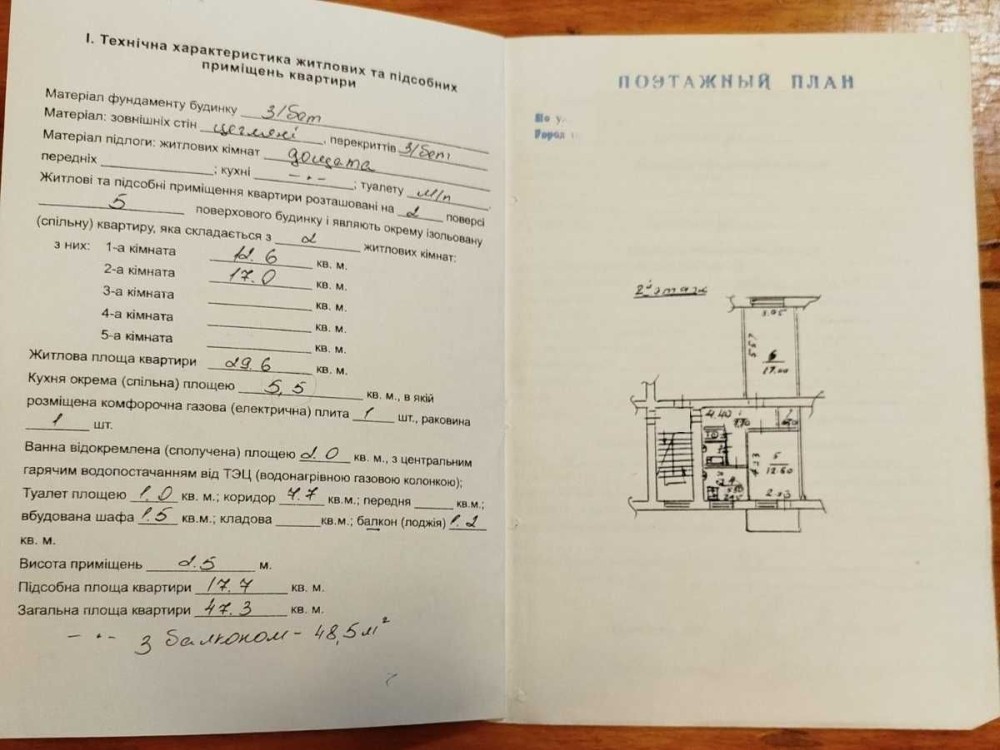 І. Технічна характеристика житлових та підсобних
приміщень квартири
Матеріал фундаменту будинку з/бет
Матеріал: зовнішніх стін цегляні, перекриттів з/бет
Матеріал підлоги: житлових кімнат дощата
передніх ; кухні -"- ; туалету м/п,
Житлові та підсобні приміщення квартири розташовані на 2 поверсі
5 поверхового будинку і являють окрему ізольовану
(спільну) квартиру, яка складається з 2 житлових кімнат:
з них: 1-а кімната 12.6 кв. м.
2-а кімната 17.0 кв. м.
3-а кімната кв. м.
4-а кімната кв. м.
5-а кімната кв. м.
Житлова площа квартири 29.6 кв. м.
Кухня окрема (спільна) площею 5,5 кв. м., в якій
розміщена комфорочна газова (електрична) плита 1 шт., раковина
1 шт.
Ванна відокремлена (сполучена) площею 2.0 кв. м., з центральним
гарячим водопостачанням від ТЭЦ (водонагрівною газовою колонкою);
Туалет площею 1.0 кв. м.; коридор 7.7 кв.м.; передня кв.м.;
вбудована шафа 1.5 кв.м.; кладова кв.м.; балкон (лоджія) 1.2
кв. м.
Висота приміщень 2.5 м.
Підсобна площа квартири 17.7 кв. м.
Загальна площа квартири 47.3 кв. м.
-"- з балконом - 48,5 м²
ПОЭТАЖНЫЙ ПЛАН
По у
Город
2й этаж
3.05
5.57
6
17.00
4.40
1
7.70
5
12.60
4.73